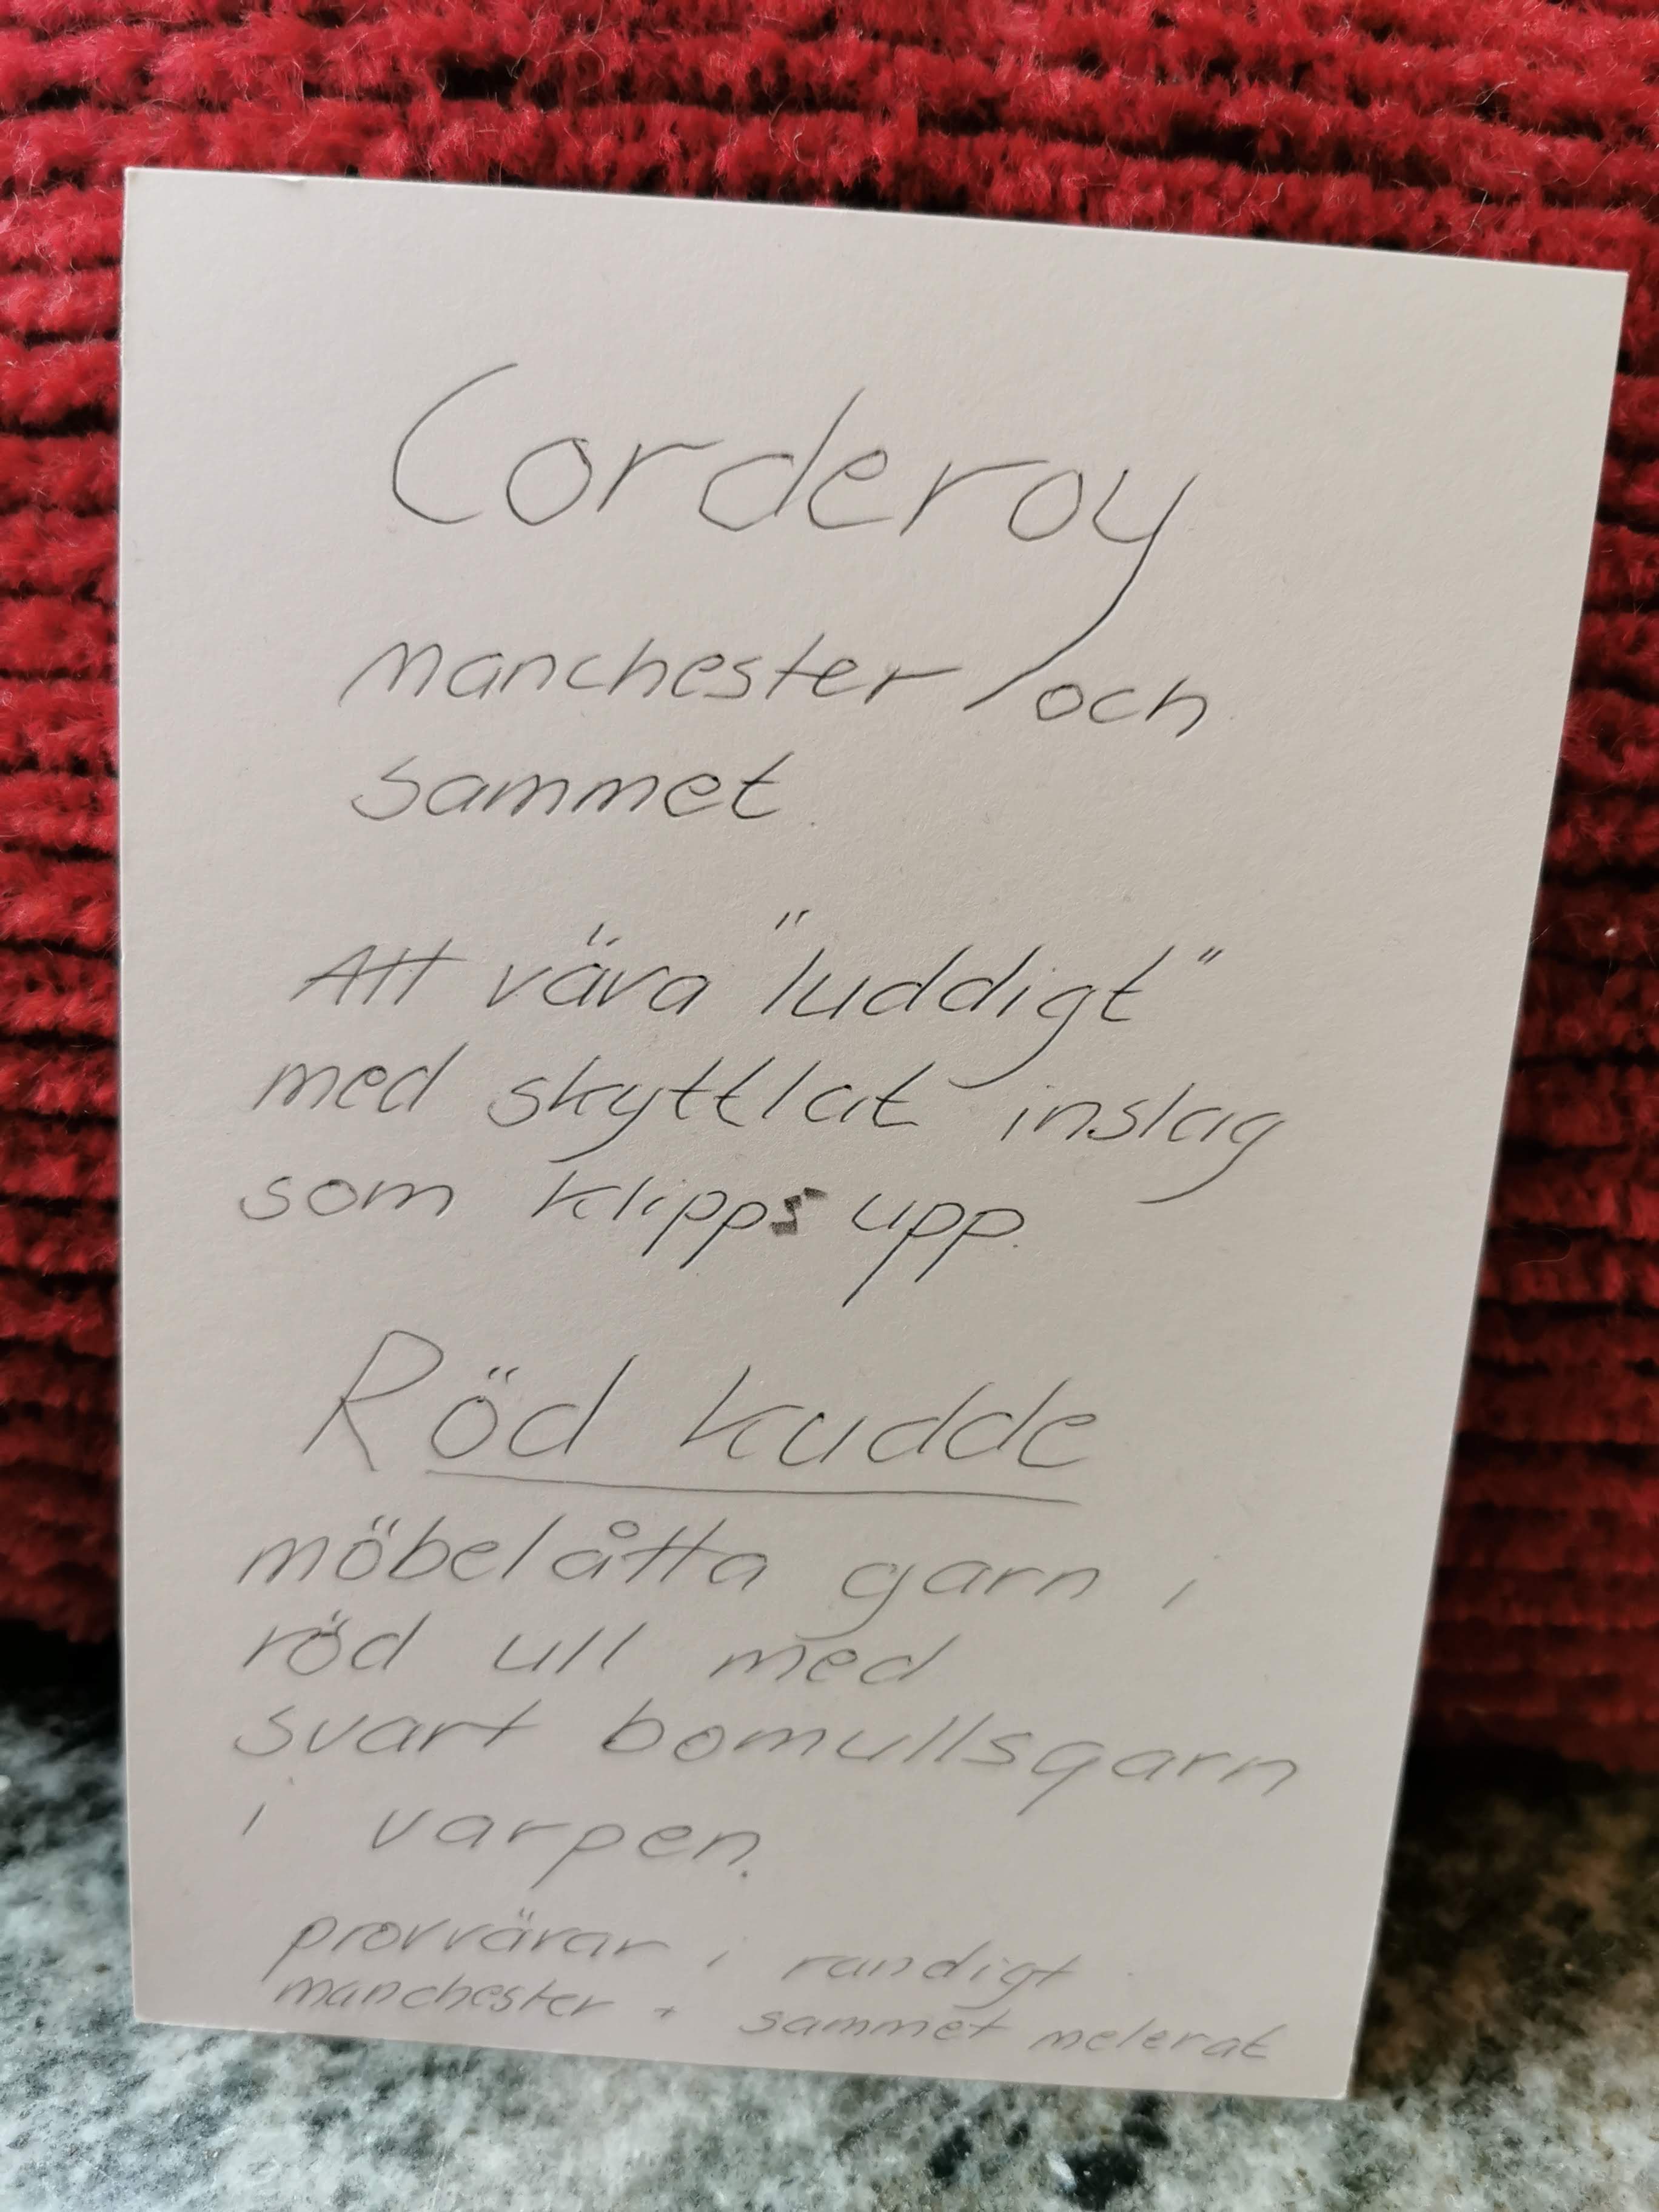 Corderoy
manchester och
sammet
Att väva "luddigt"
med skyttlat inslag
som klipps upp.
Röd kudde
möbelåtta garn i
röd ull med
svart bomullsgarn
i varpen.
provvävar i randigt
manchester + sammet melerat